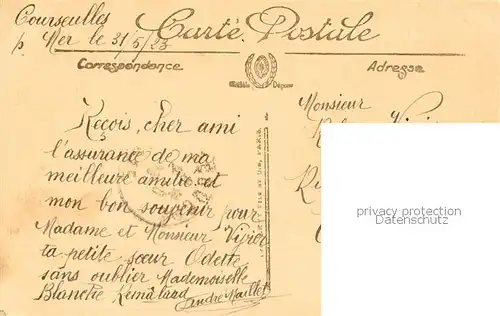 Courseulles
s/ Mer le 31/5/23
Carte Postale
Correspondance
Adresse
Monsieur
Reçois, cher ami
l'assurance de ma
meilleure amitié et
mon bon souvenir pour
Madame et Monsieur
ta petite sœur Odette
sans oublier Mademoiselle
Blanche
André Maillet
privacy protection
Datenschutz